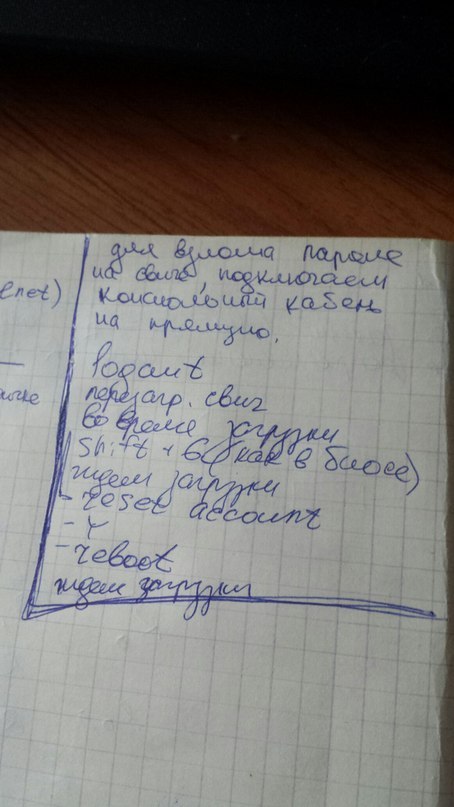 для взлома пароля
на свиче, подключаем
enet)
консольный кабель
на прямую.
logout
перезагр. свич
во время загрузки
Shift + 6 (как в биосе)
ждем загрузки
- reset account
- Y
- reboot
ждем загрузки